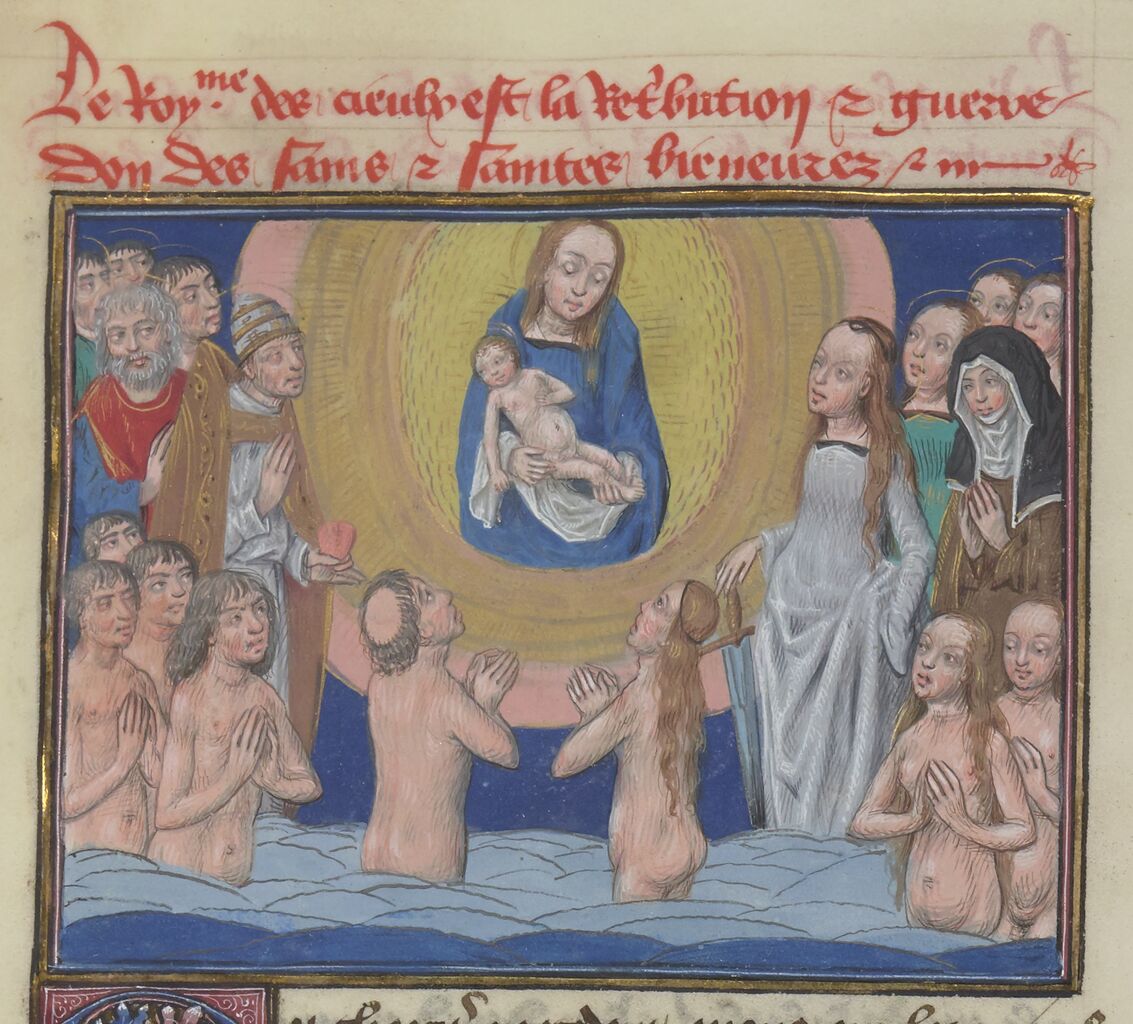 Le Roy.me des cieulx est la Ret'bution ⁊ guerre
don des sains ⁊ saintes bieneurez ⁊ m